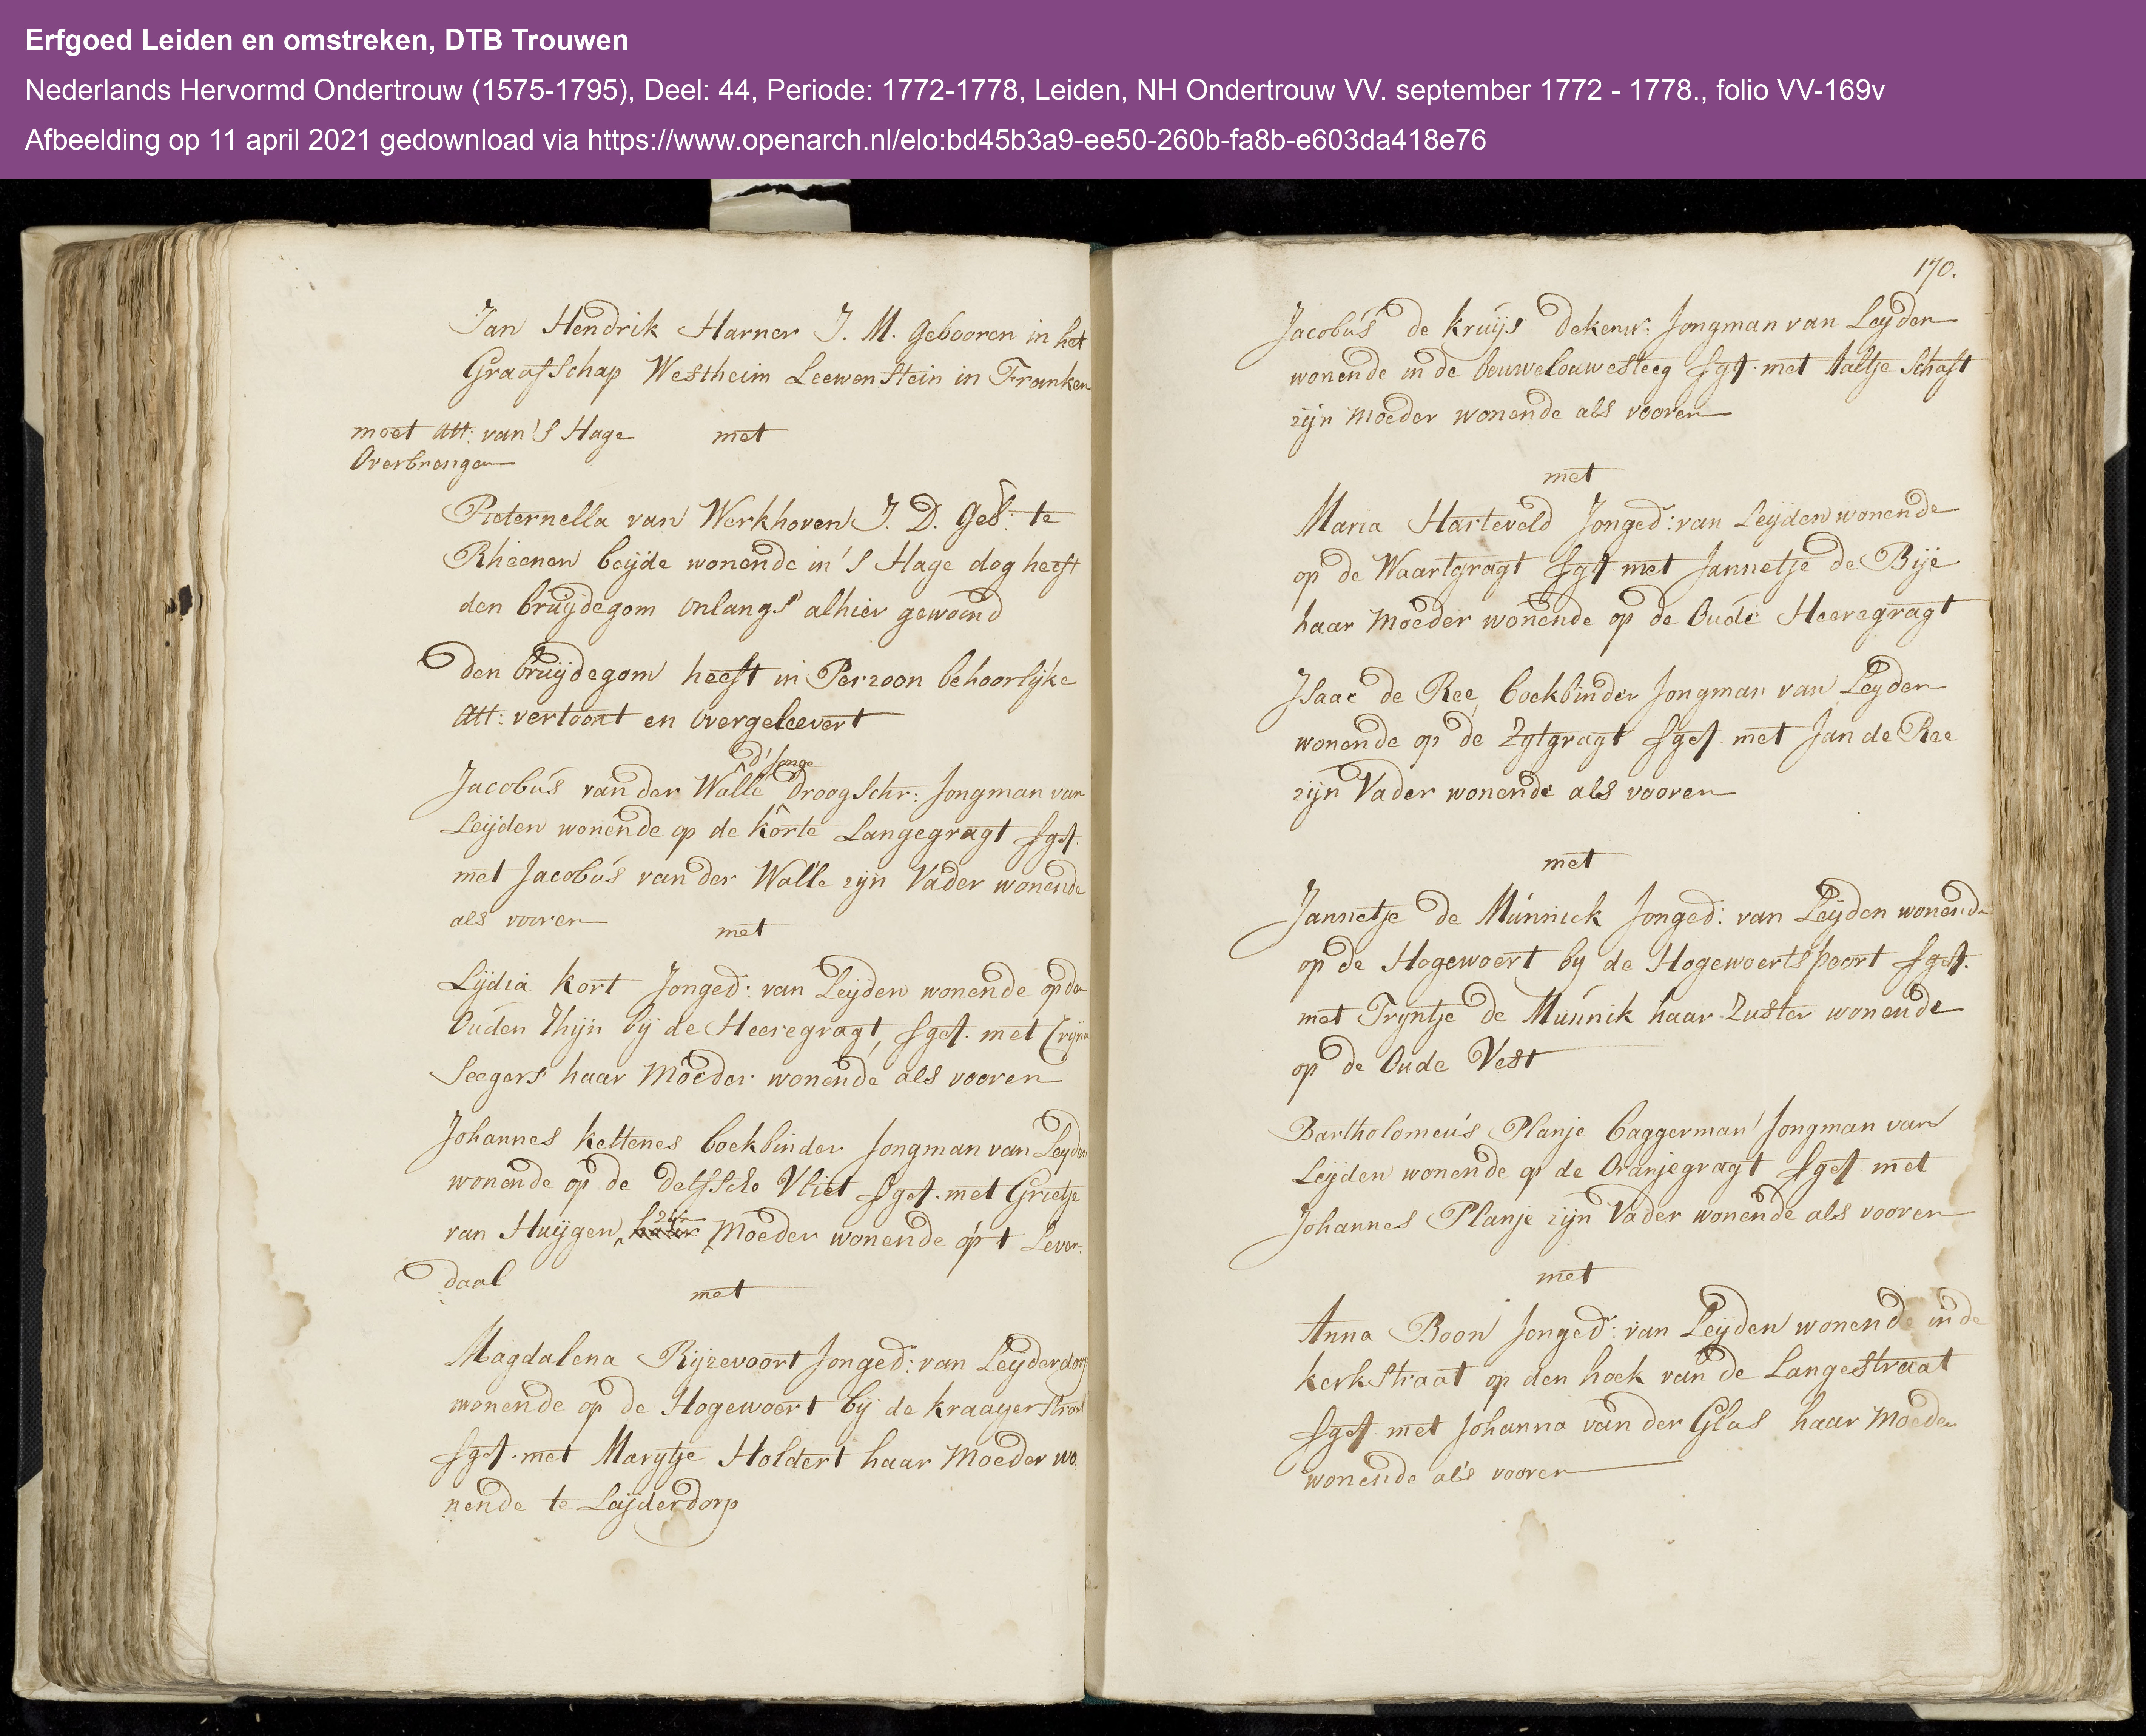 Erfgoed Leiden en omstreken, DTB Trouwen
Nederlands Hervormd Ondertrouw (1575-1795), Deel: 44, Periode: 1772-1778, Leiden, NH Ondertrouw VV. september 1772 - 1778., folio VV-169v
Afbeelding op 11 april 2021 gedownload via https://www.openarch.nl/elo:bd45b3a9-ee50-260b-fa8b-e603da418e76
Jan Hendrik Harner J. M. Gebooren in het
Graafschap Westheim Leewenstein in Franken
moet att: van 's Hage met
Overbrengen
Pieternella van Werkhoven J. D. Geb: te
Rheenen beijde wonende in 's Hage dog heeft
den bruijdegom onlangs alhier gewoond
den bruijdegom heeft in Perzoon behoorlijke
att: vertoont en overgeleevert
d'Jonge
Jacobus van der Walle droogschr: Jongman van
Leijden wonende op de korte Langegragt sget.
met Jacobus van der Walle zijn Vader wonende
als vooren
met
Lijdia kort Jonged: van Leijden wonende op den
Ouden Rhijn bij de Heeregragt, sget. met Crijn
Seegers haar Moeder wonende als vooren
Johannes kettenes boekbinder Jongman van Leyden
wonende op de delfsche Vliet sget. met Grietje
van Huijgen, zijn Moeder wonende op 't Lever:
daal
met
Magdalena Rijzevoort Jonged: van Leijderdorp
wonende op de Hogewoert bij de kraayerstraat
sget. met Marijtje Holdert haar Moeder wo
nende te Leijderdorp
170.
Jacobus de kruijs dekenw: Jongman van Leyden
wonende in de bouwelouwesteeg sget. met Aaltje Schaft
zijn Moeder wonende als vooren
met
Maria Harteveld Jonged: van Leijden wonende
op de Waartgragt sget. met Jannetje de Bije
haar Moeder wonende op de Oude Heeregragt
Isaac de Ree, boekbinder Jongman van Leyden
wonende op de Zytgragt sget. met Jan de Ree
zijn Vader wonende als vooren
met
Jannetje de Munnick Jonged: van Leijden wonende
op de Hogewoert by de Hogewoertspoort sget.
met Tryntje de Munnik haar Zuster wonende
op de Oude Vest
Bartholomeus Planje baggerman Jongman van
Leijden wonende op de Oranjegragt sget met
Johannes Planje zijn Vader wonende als vooren
met
Anna Boon Jonged: van Leijden wonende in de
kerkstraat op den hoek van de Langestraat
sget. met Johanna van der Glas haar Moeder
wonende als vooren